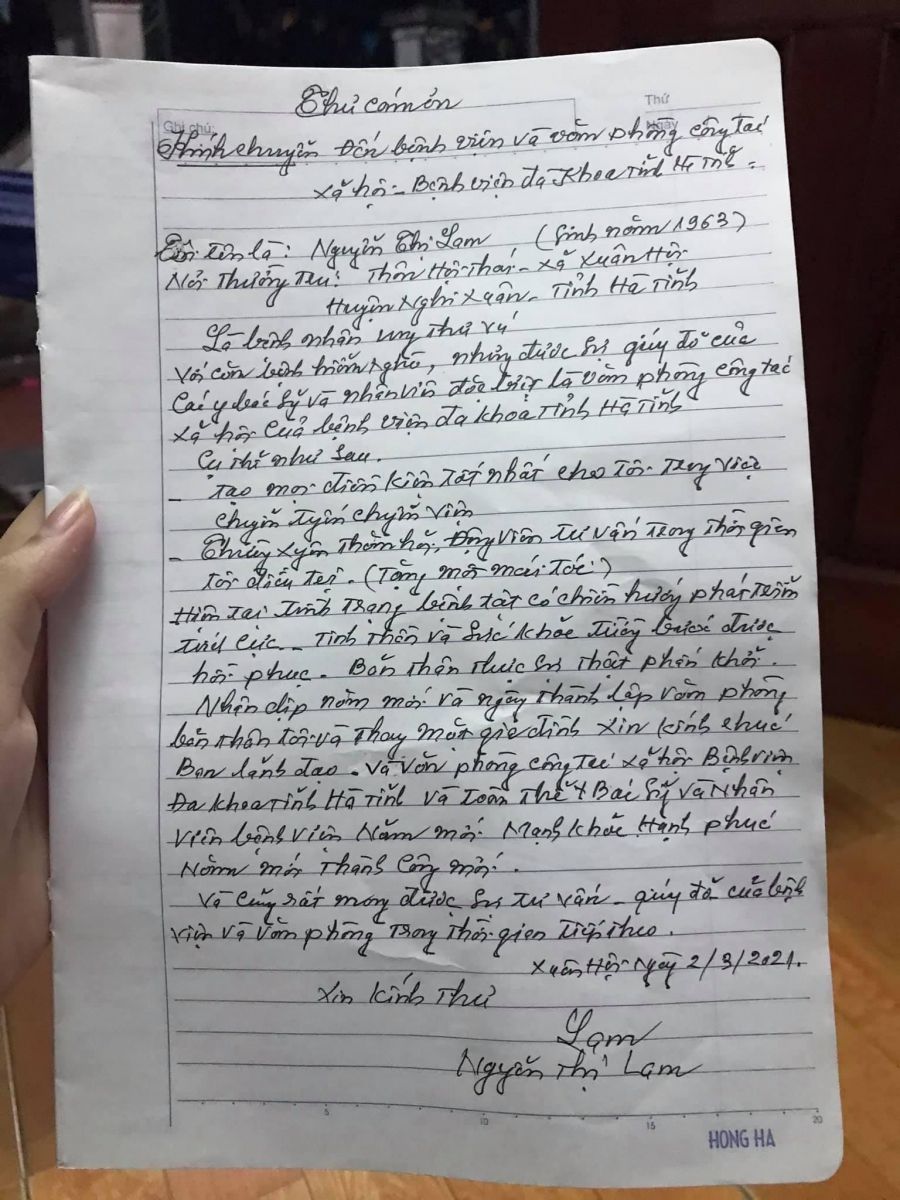 Thư cám ơn
Ghi chú:
Thứ
Ngày
Kính chuyển Đến bệnh viện và văn phòng công tác
xã hội - Bệnh viện đa khoa tỉnh Hà Tĩnh.
Tôi tên là: Nguyễn Thị Lam, (Sinh năm 1963)
Nơi Thường Trú: Thôn Hội Thái - Xã Xuân Hội
Huyện Nghi Xuân - Tỉnh Hà Tĩnh
Là bệnh nhân ung thư vú
Với căn bệnh hiểm nghèo, nhưng được sự giúp đỡ của
các y bác sỹ và nhân viên đặc biệt là văn phòng công tác
xã hội của bệnh viện đa khoa tỉnh Hà Tĩnh
Cụ thể như sau.
- Tạo mọi điều kiện tốt nhất cho tôi trong việc
chuyển tuyến chuyển viện
- Thường xuyên thăm hỏi, Động viên tư vấn trong thời gian
tôi điều trị. (Tặng một mái tóc)
Hiện tại tình trạng bệnh tật có chiều hướng phát triển
tích cực - Tinh thần và sức khỏe từng bước được
hồi phục. Bản thân thực sự thật phấn khởi.
Nhân dịp năm mới và ngày thành lập văn phòng
bản thân tôi và thay mặt gia đình xin kính chúc
Ban lãnh đạo - và văn phòng công tác xã hội Bệnh viện
Đa khoa tỉnh Hà Tĩnh và toàn thể Y Bác Sỹ và Nhân
viên bệnh viện Năm mới Mạnh khỏe Hạnh phúc
Năm mới Thành Công mới.
Và cũng rất mong được sự tư vấn - giúp đỡ của bệnh
viện và văn phòng trong thời gian tiếp theo.
Xuân Hội - Ngày 2/3/2021.
Xin kính thư
Lam
Nguyễn Thị Lam
5 10 15 20
HONG HA